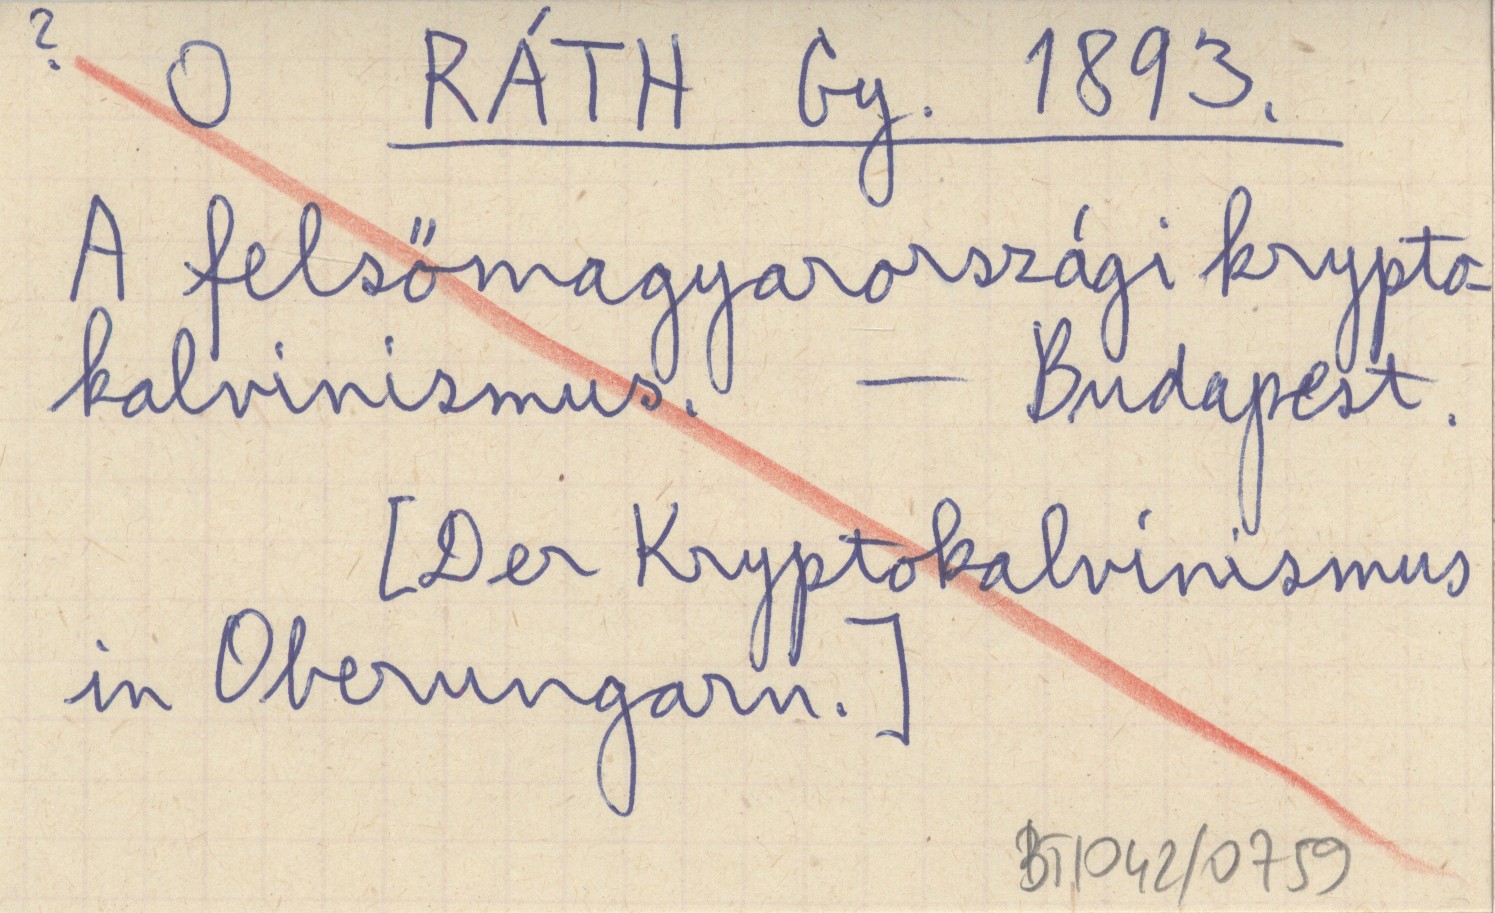 ? O RÁTH Gy. 1893.
A felsőmagyarországi krypto-
kalvinizmus. — Budapest.
[Der Kryptokalvinismus
in Oberungarn.]
BT1042/0759